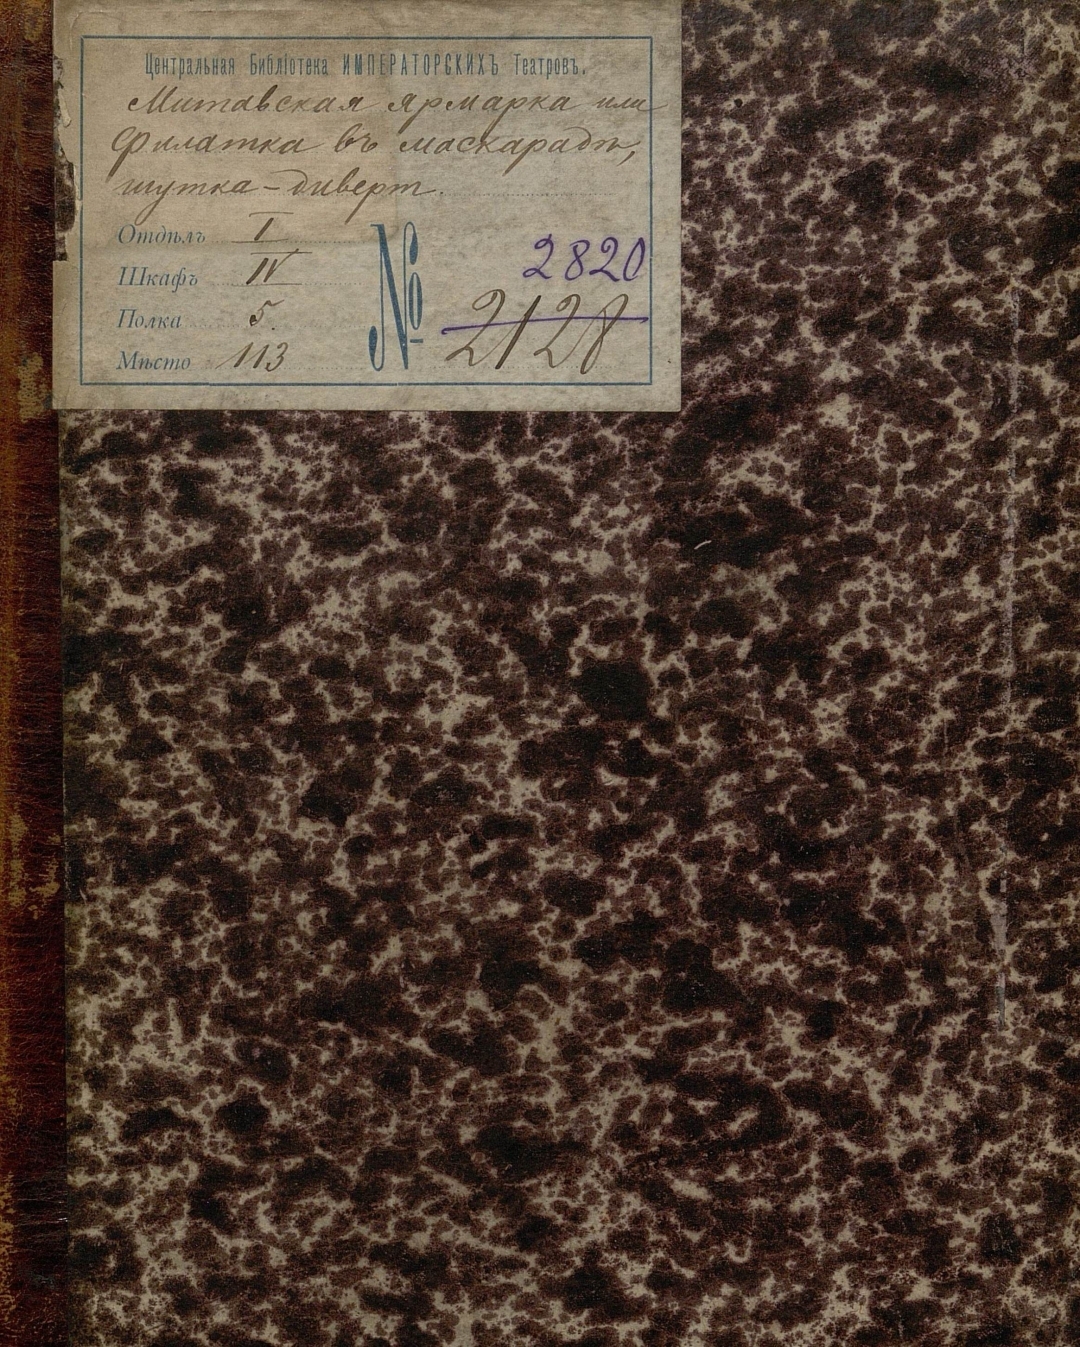 Центральная Библіотека ИМПЕРАТОРСКИХЪ Театровъ.
Митавская ярмарка или
Филатка въ маскарадѣ,
шутка-диверт.
Отдѣлъ I
Шкафъ IV
Полка 5.
Мѣсто 113
№
2820
2128